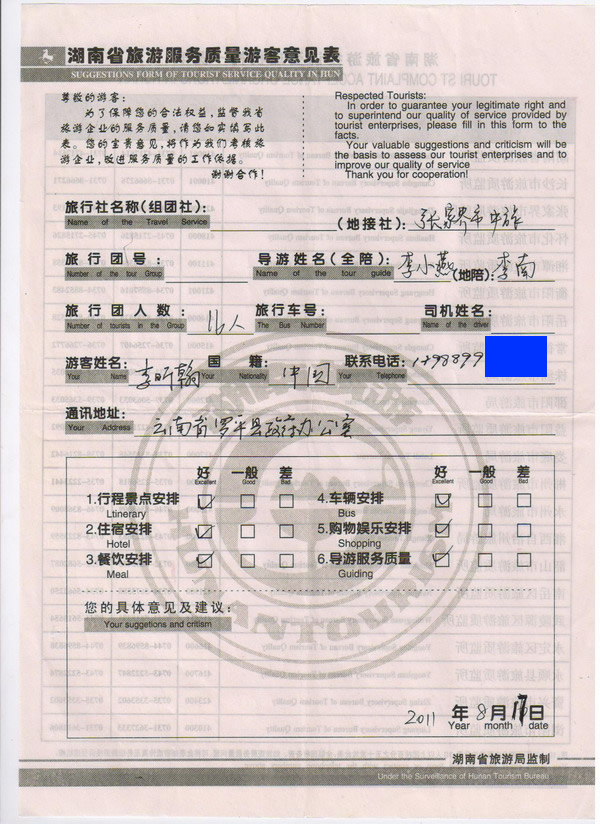 湖南省旅游服务质量游客意见表
SUGGESTIONS FORM OF TOURIST SERVICE QUALITY IN HUN
尊敬的游客：
为了保障您的合法权益，监督我省
旅游企业的服务质量，请您如实填写此
表。您的宝贵意见，将作为我们考核旅
游企业，改进服务质量的工作依据。
谢谢合作！
Respected Tourists:
In order to guarantee your legitimate right and
to superintend our quality of service provided by
tourist enterprises, please fill in this form to the
facts.
Your valuable suggestions and criticism will
be the basis to assess our tourist enterprises and to
improve our quality of service
Thank you for cooperation!
旅行社名称(组团社)： (地接社)：张家界市中旅
Name of the Travel Service
旅行团号： 导游姓名(全陪)：李小燕(地陪)：李南
Number of the tour Group Name of the tour guide
旅行团人数：16人 旅行车号： 司机姓名：
Number of tourists in the Group The Bus Number Name of the driver
游客姓名：李昕翰 国籍：中国 联系电话：1398899
Your Name Your Nationality Your Telephone
通讯地址：云南省罗平县政府办公室
Your Address
好 一般 差 好 一般 差
Excellent Good Bad Excellent Good Bad
1.行程景点安排 4.车辆安排
Ltinerary Bus
2.住宿安排 5.购物娱乐安排
Hotel Shopping
3.餐饮安排 6.导游服务质量
Meal Guiding
您的具体意见及建议：
Your suggetions and critism
HUNAN TOURISM
2011 年 8 月 日
Year month date
湖南省旅游局监制
Under the Surveillance of Hunan Tourism Bureau